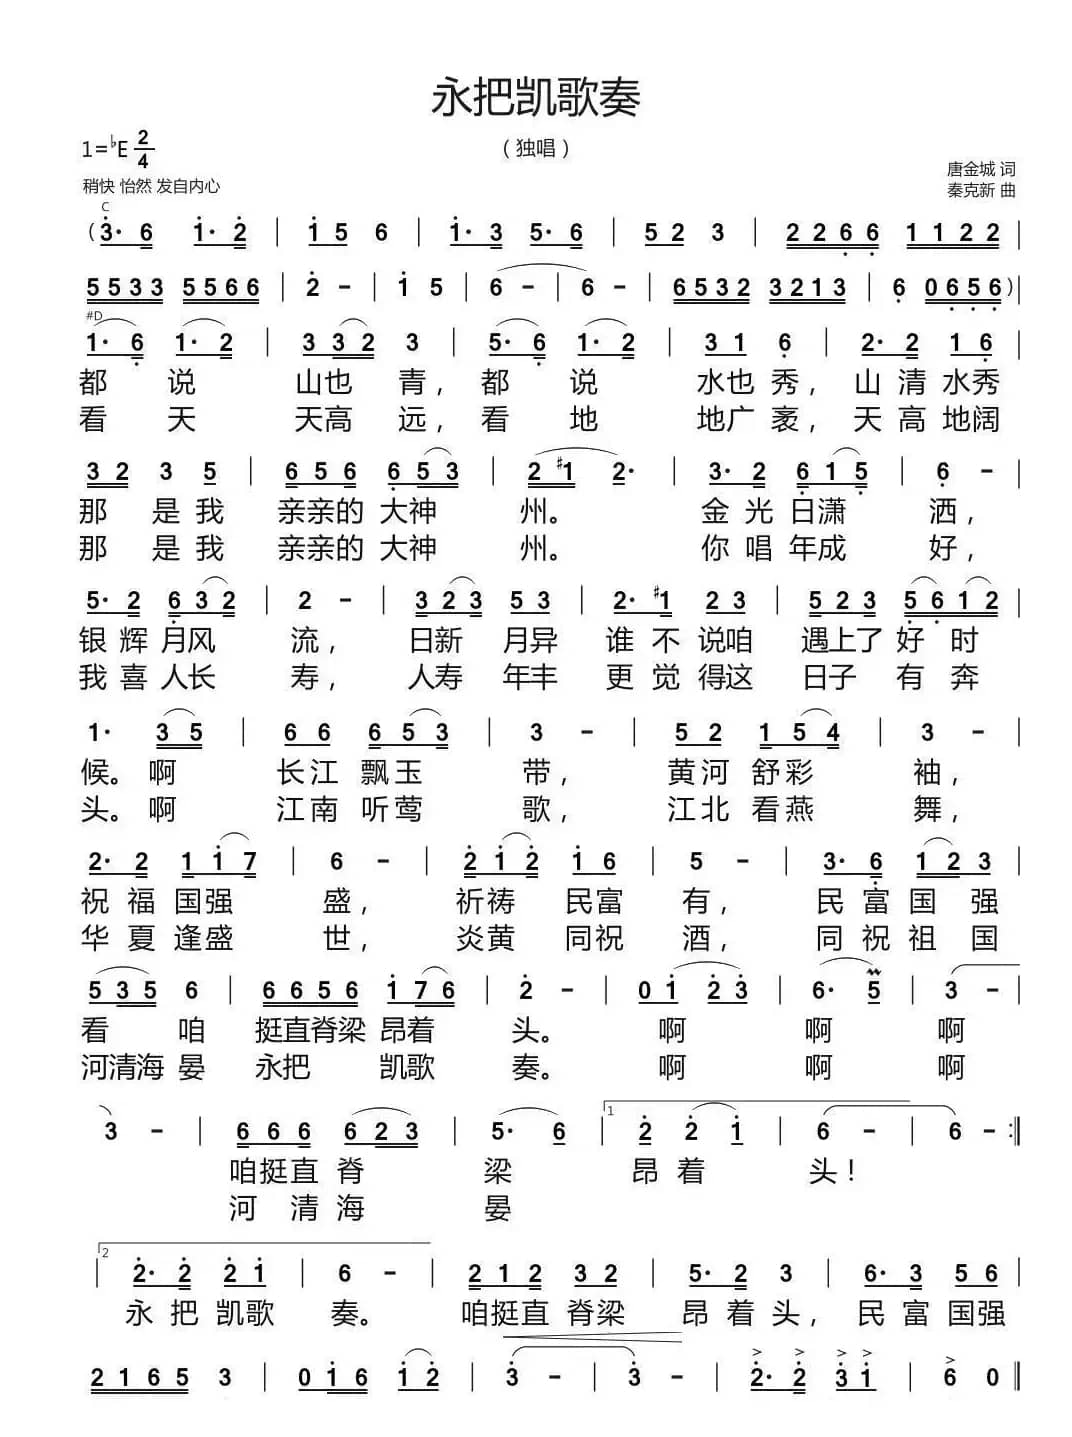 永把凯歌奏
（独唱）
1=♭E 2/4
唐金城 词
稍快 怡然 发自内心
秦克新 曲
C
(3· 6 1· 2 | 1 5 6 | 1· 3 5· 6 | 5 2 3 | 2 2 6 6 1 1 2 2 |
5 5 3 3 5 5 6 6 | 2 - | 1 5 | 6 - | 6 - | 6 5 3 2 3 2 1 3 | 6 0 6 5 6) |
#D
1· 6 1· 2 | 3 3 2 3 | 5· 6 1· 2 | 3 1 6 | 2· 2 1 6 |
都 说 山也 青, 都 说 水也 秀, 山 清 水秀
看 天 天高 远, 看 地 地广 袤, 天 高 地阔
3 2 3 5 | 6 5 6 6 5 3 | 2 #1 2· | 3· 2 6 1 5 | 6 - |
那 是 我 亲亲的 大神 州。 金 光 日潇 洒,
那 是 我 亲亲的 大神 州。 你 唱 年成 好,
5· 2 6 3 2 | 2 - | 3 2 3 5 3 | 2· #1 2 3 | 5 2 3 5 6 1 2 |
银 辉 月风 流, 日新 月异 谁 不 说咱 遇上了 好 时
我 喜 人长 寿, 人寿 年丰 更 觉 得这 日子 有 奔
1· 3 5 | 6 6 6 5 3 | 3 - | 5 2 1 5 4 | 3 - |
候。 啊 长江 飘玉 带, 黄河 舒彩 袖,
头。 啊 江南 听莺 歌, 江北 看燕 舞,
2· 2 1 1 7 | 6 - | 2 1 2 1 6 | 5 - | 3· 6 1 2 3 |
祝 福 国强 盛, 祈祷 民富 有, 民 富 国 强
华 夏 逢盛 世, 炎黄 同祝 酒, 同 祝 祖 国
5 3 5 6 | 6 6 5 6 1 7 6 | 2 - | 0 1 2 3 | 6· 5 | 3 - |
看 咱 挺直脊梁 昂着 头。 啊 啊 啊
河清海 晏 永把 凯歌 奏。 啊 啊 啊
3 - | 6 6 6 6 2 3 | 5· 6 | 1 2 2 1 | 6 - | 6 - :||
咱挺直 脊 梁 昂 着 头!
河 清 海 晏
2
2· 2 2 1 | 6 - | 2 1 2 3 2 | 5· 2 3 | 6· 3 5 6 |
永 把 凯歌 奏。 咱挺直 脊梁 昂 着 头, 民 富 国强
2 1 6 5 3 | 0 1 6 1 2 | 3 - | 3 - | 2· 2 3 1 | 6 0 ||